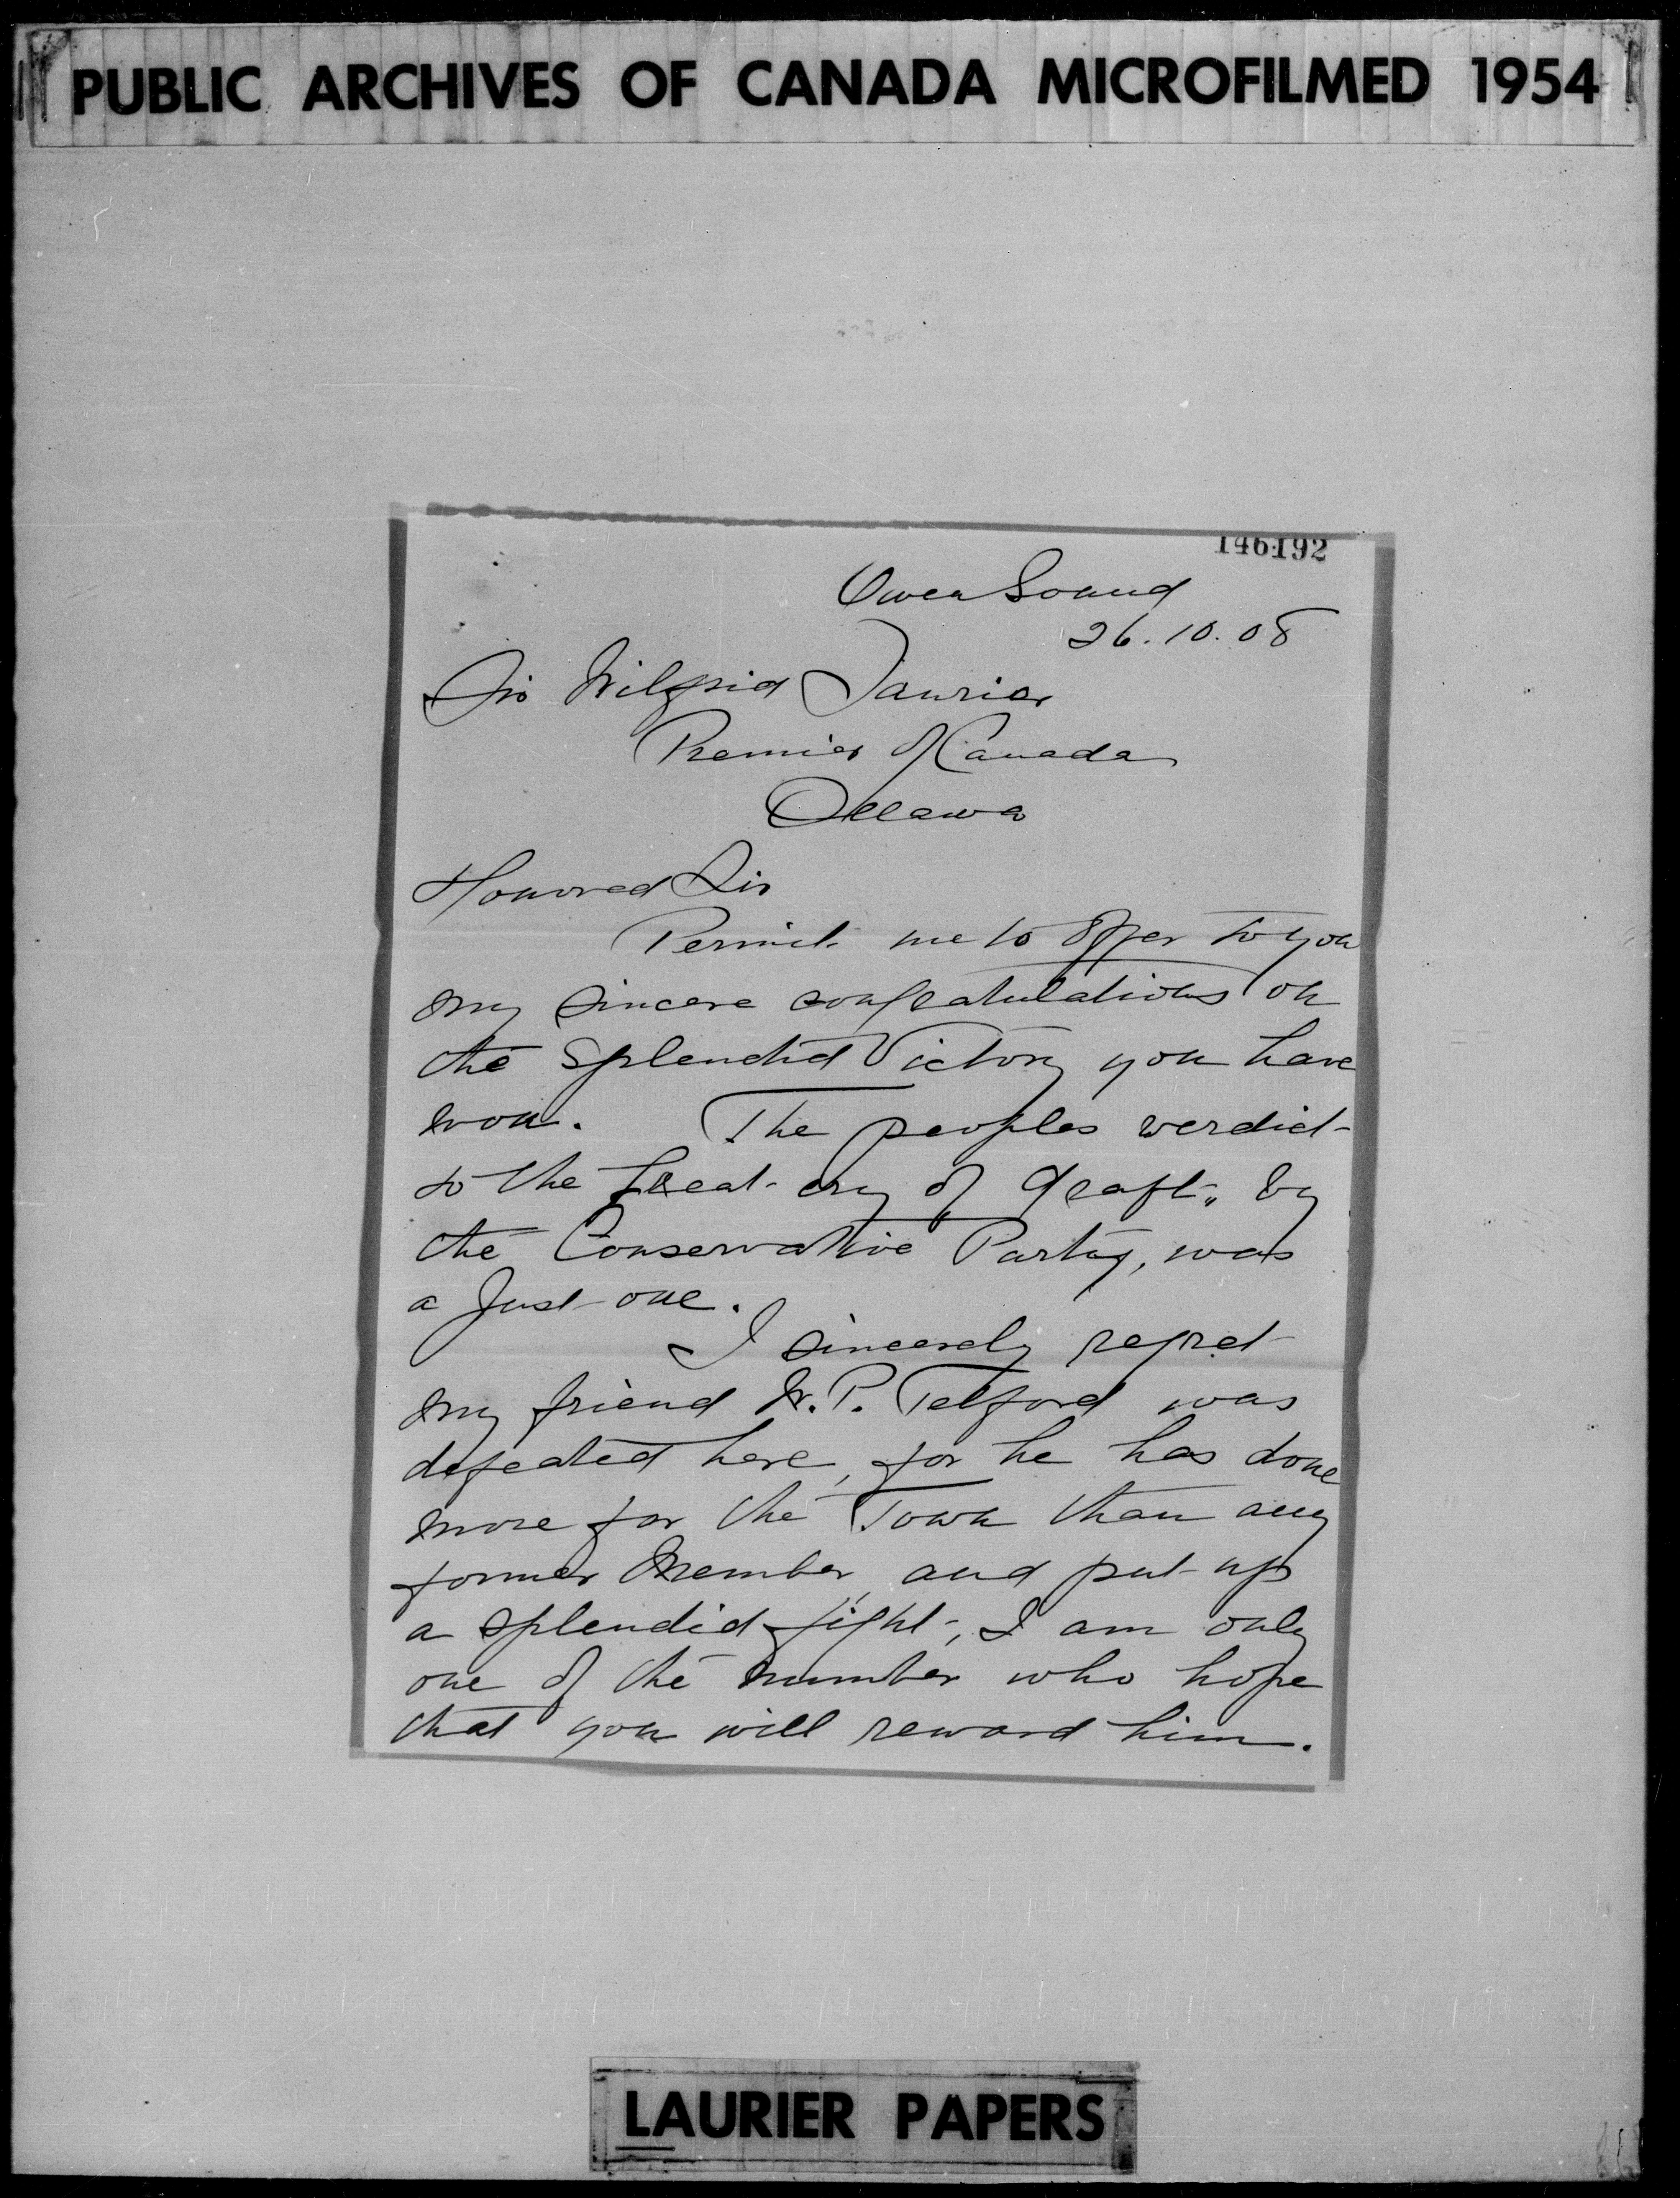 PUBLIC ARCHIVES OF CANADA MICROFILMED 1954
146192
Owen Sound
26.10.08
Sir Wilfrid Laurier
Premier of Canada
Ottawa
Honored Sir
Permit me to offer to you
my sincere congratulations on
the splendid Victory you have
won. The peoples verdict
to the great cry of "Graft" by
the Conservative Party, was
a just one.
I sincerely regret
my friend W. P. Telford was
defeated here, for he has done
more for the Town than any
former Member, and put up
a splendid fight, I am only
one of the number who hope
that you will reward him.
LAURIER PAPERS